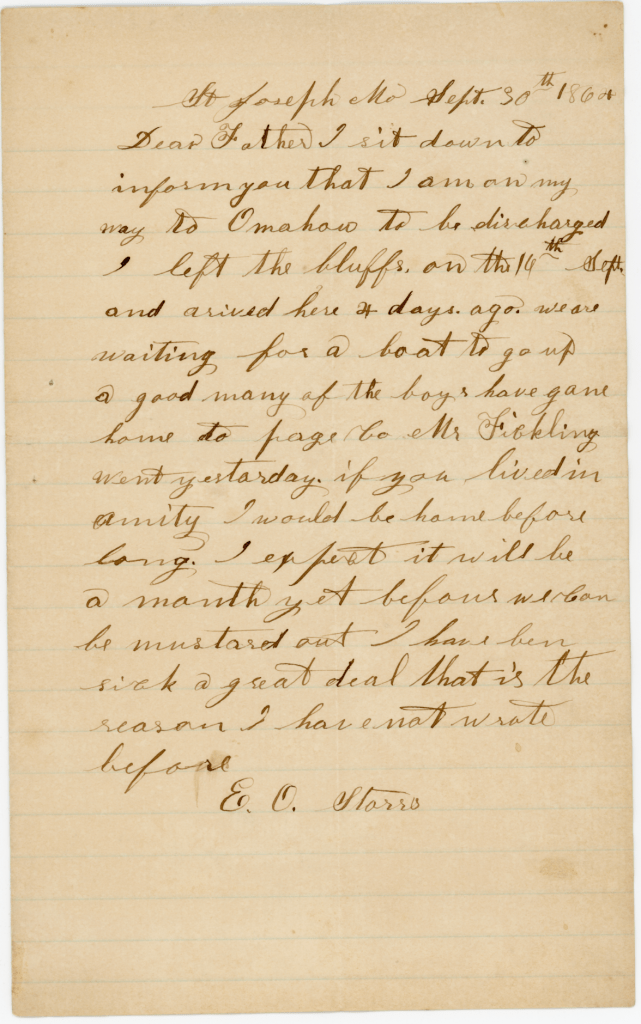 St Joseph Mo Sept. 30th 1864
Dear Father I sit down to
inform you that I am on my
way to Omahow to be discharged
I left the bluffs. on the 14th Sept.
and arived here 4 days. ago. we are
waiting for a boat to go up
a good many of the boys have gane
home to page Co Mr Fickling
went yestarday. if you lived in
amity I would be home before
long. I expect it will be
a month yet before we Can
be mustard out I have ben
sick a great deal that is the
reason I have not wrote
before
E. O. Storrs